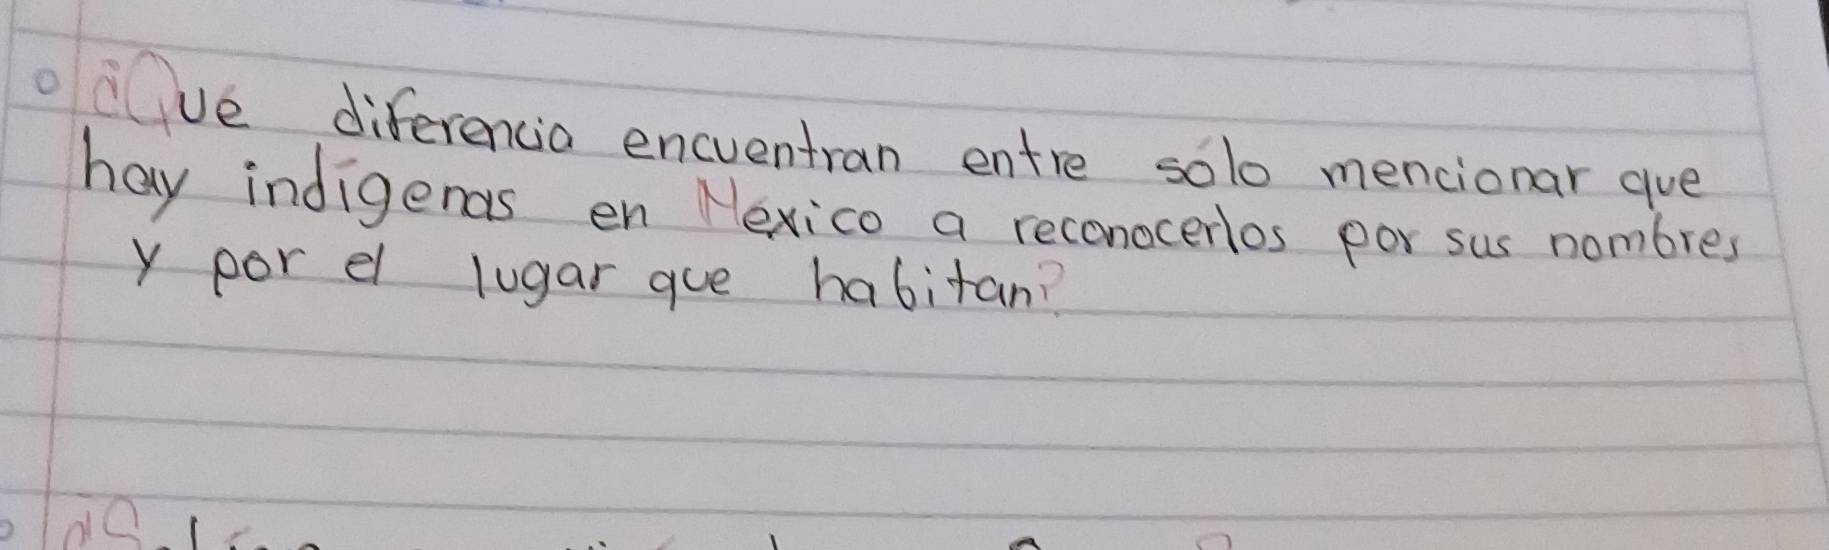 ¿Qué diferencia encuentran entre sólo mencionar que
hay indígenas en México a reconocerlos por sus nombres
y por el lugar que habitan?